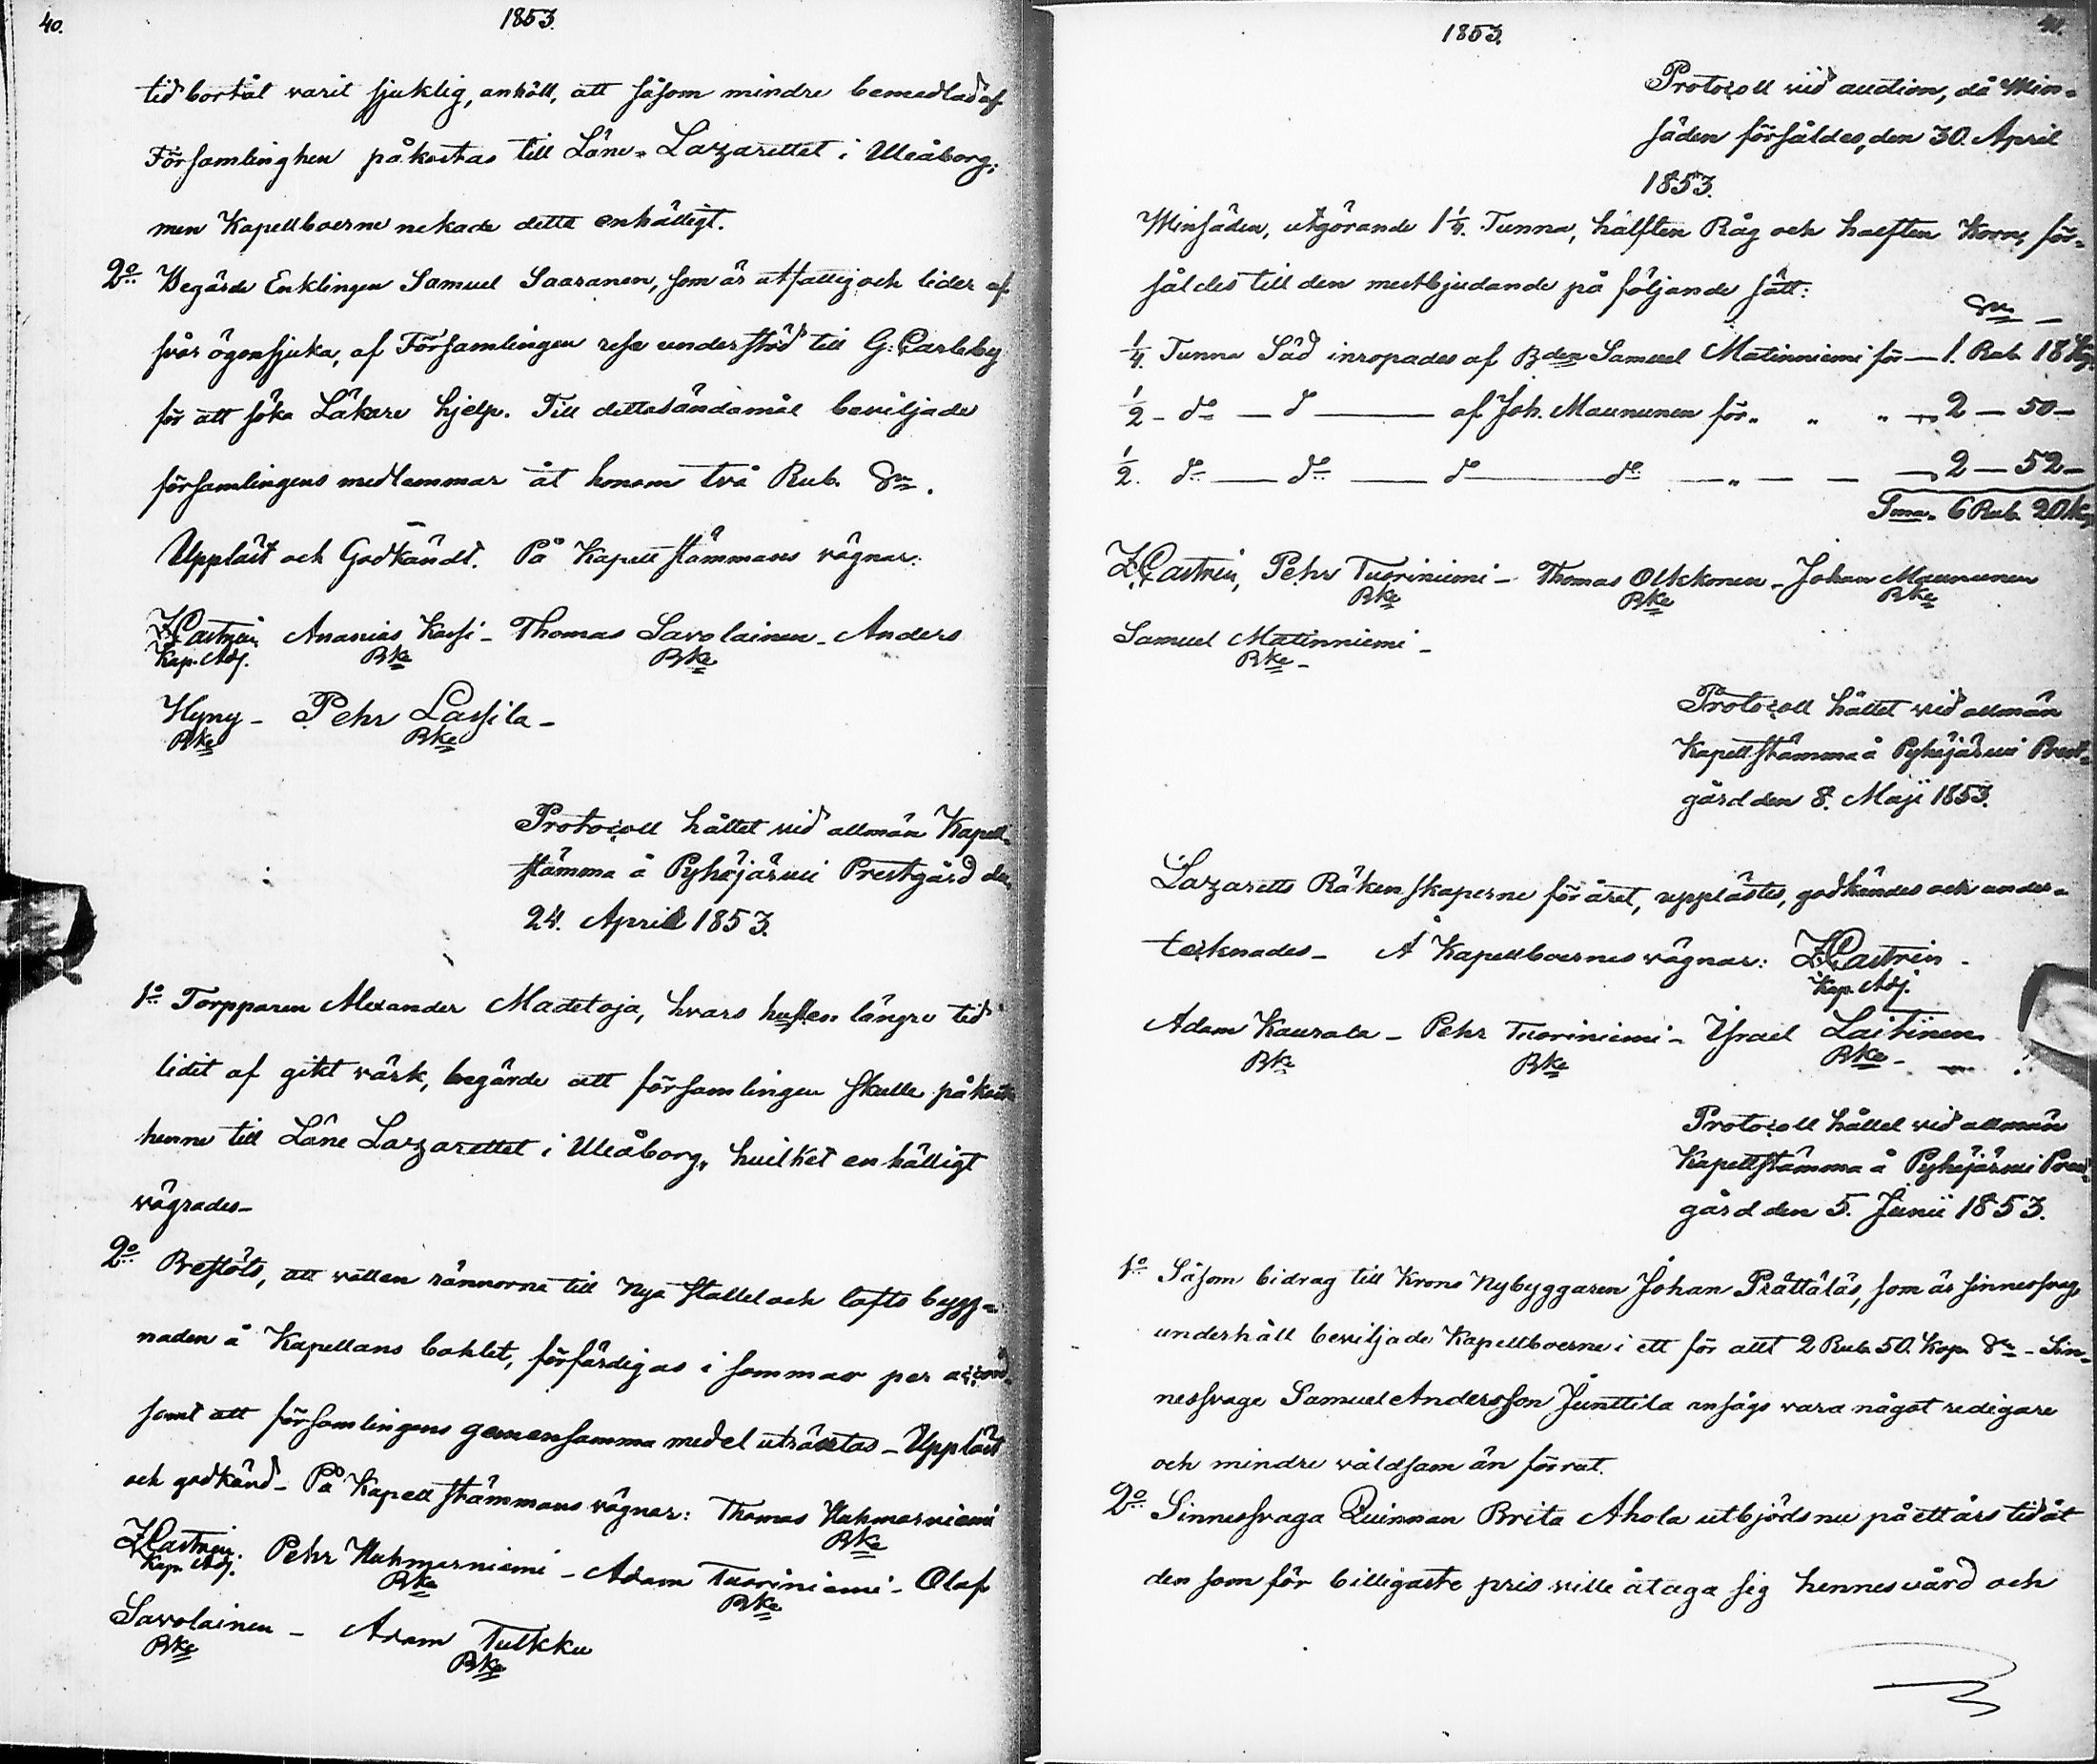 40.
1853.
tid bortåt varit sjuklig, anhöll, att såsom mindre bemedlad af
Församlinghen påkostas till Läne-Lazarettet i Uleåborg;
men Kapellboerne nekade detta enhälligt.
2o Begärde Enklingen Samuel Saaranen, som är utfattig och lider af
svår ögonsjuka, af Församlingen rese understöd till G: Carleby
för att söka Läkare hjelp. Till detta ändamål beviljade
församlingens medlemmar åt honom två Rub. Sr.
Uppläst och Godkändt. På Kapell stämmans vägnar:
Z Castrén, Ananias Kassi - Thomas Savolainen - Anders
Kap. Adj. Bke Bke
Hyny - Pehr Lassila -
Bke Bke
Protocoll hållet vid allmän Kapell-
stämma å Pyhäjärvi Prestgård den
24. April 1853.
1o Torpparen Alexander Madetoja, hvars hustru längre tid
lidit af gikt värk, begärde att församlingen skulle påkosta
henne till Läne Lazarettet i Uleåborg, hvilket enhälligt
vägrades -
2o Beslöts, att vatten rännorna till nya stallet och lofts bygg-
naden å Kapellans bohlet, förfärdigas i sommar per accord
samt att församlingens gemensamma medel uträttas - Uppläst
och godkänd - På Kapell stämmans vägnar: Thomas Huhmarniemi
Bke
Z Castrén. Pehr Huhmarniemi - Adam Tuoriniemi - Olof
Kap. Adj. Bke Bke
Savolainen - Adam Tulkku
Bke Bke
1853.
41.
Protocoll vid auction, då Min-
säden försåldes, den 30. April
1853.
Minsäden, utgörande 1 1/4. Tunna, hälften Råg och halften Korn, för-
såldes till den mestbjudande på följande sätt:
Sr
1/4. Tunna Säd inropades af Bden Samuel Matinniemi för — 1. Rub. 18 Kop.
1/2 - do — do — af Joh. Maununen för " " " — 2 — 50 —
1/2. do — do — do — do — " — — — 2 — 52 —
Sma. 6 Rub. 20 Kop.
Z Castrén, Pehr Tuoriniemi - Thomas Olkkonen - Johan Maununen
Bke Bke Bke
Samuel Matinniemi -
Bke -
Protocoll hållet vid allmän
Kapellstämma å Pyhäjärvi Prest-
gård den 8. Maji 1853.
Lazaretts Räkenskaperne för året, upplästes, godkändes och under-
tecknades - Å Kapellboernes vägnar: Z Castrén -
Kap. Adj.
Adam Kaurala - Pehr Tuoriniemi - Israel Laitinen
Bke Bke Bke -
Protocoll hållet vid allmän
Kapellstämma å Pyhäjärvi Prest-
gård den 5. Junii 1853.
1o Såsom bidrag till Krono Nybyggaren Johan Prättäläs, som är sinnessvag,
underhåll beviljade Kapellboerne i ett för allt 2 Rub. 50. Kop. Sr - Sin-
nessvage Samuel Andersson Junttila ansågs vara något redigare
och mindre våldsam än förrut.
2o Sinnessvaga Quinnan Brita Ahola utbjöds nu på ett års tid åt
den som för billigaste pris ville åtaga sig hennes vård och